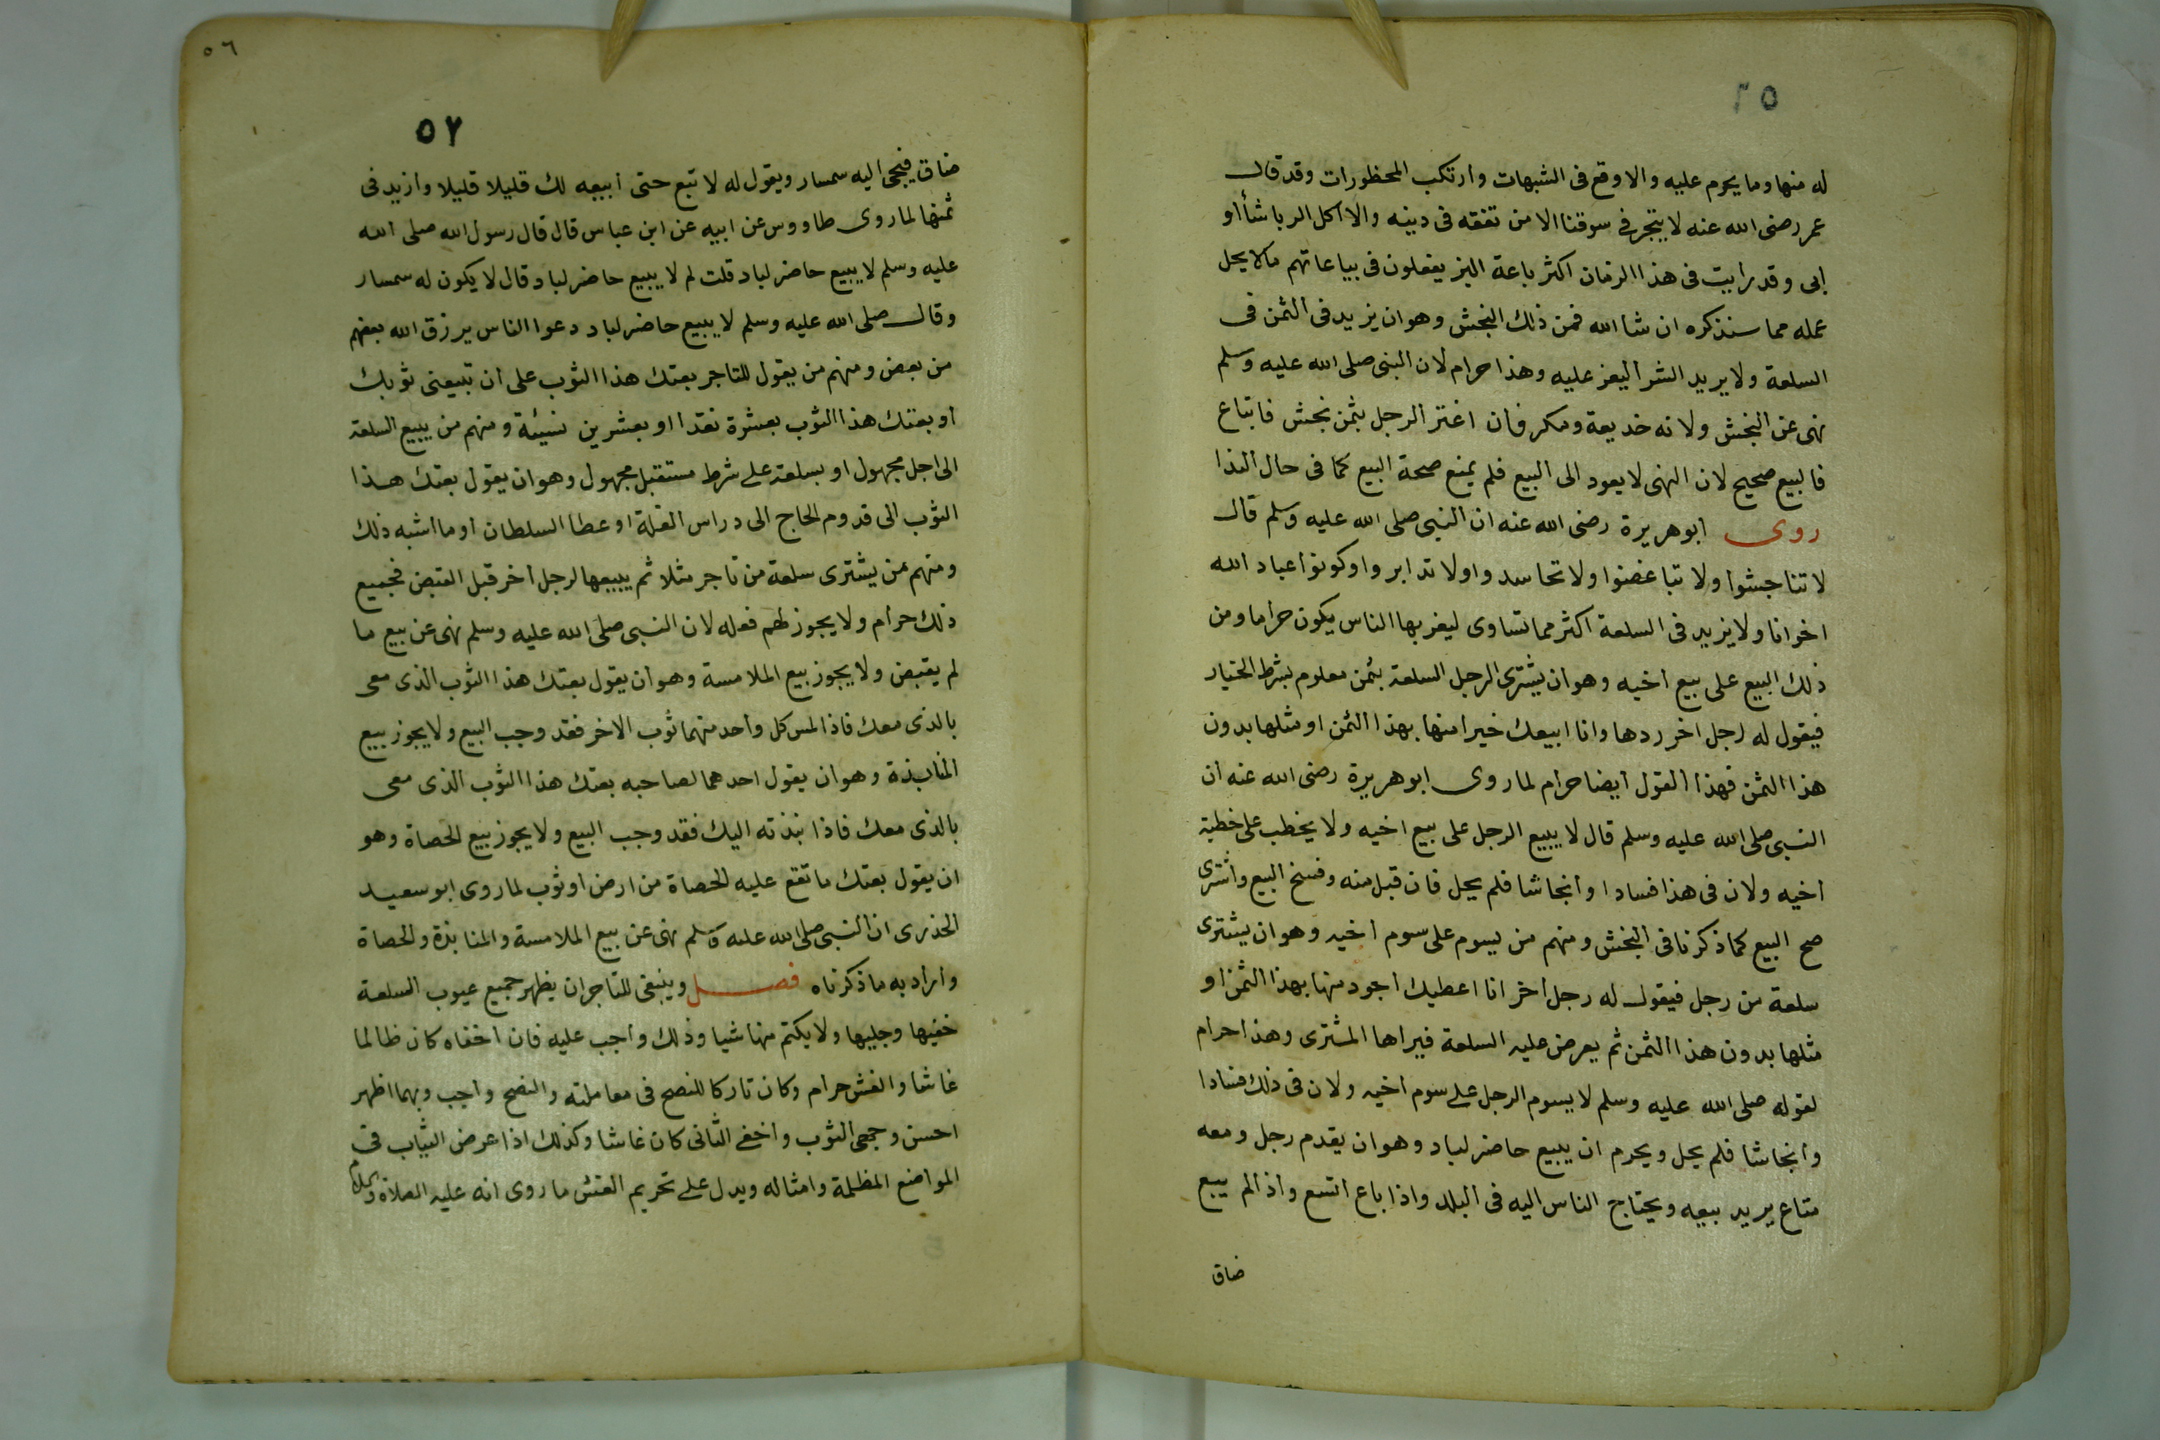 ٢٥
له منها وما يحرم عليه والا وقع فى الشبهات وارتكب المحظورات وقد قال
عمر رضى الله عنه لا يتجر فى سوقنا الا من تفقه فى دينه والا اكل الربا شأ أو
ابى وقد رايت فى هذا الزمان اكثر باعة البز يفعلون فى بياعاتهم مالا يحل
عمله مما سنذكره ان شا الله فمن ذلك النجش وهو ان يزيد فى الثمن فى
السلعة ولا يريد الشرا ليغز عليه وهذا حرام لان النبى صلى الله عليه وسلم
نهى عن النجش ولانه خديعة ومكر فان اغتر الرجل بثمن نجش فابتاع
فالبيع صحيح لان النهى لا يعود الى البيع فلم يمنع صحة البيع كما فى حال الندا
روى ابو هريرة رضى الله عنه ان النبى صلى الله عليه وسلم قال
لا تناجشوا ولا تباغضوا ولا تحاسدوا ولا تدابروا وكونوا عباد الله
اخوانا ولا يزيد فى السلعة اكثر مما تساوى ليغر بها الناس يكون حراما ومن
ذلك البيع على بيع اخيه وهو ان يشترى الرجل السلعة بثمن معلوم بشرط الخيار
فيقول له رجل اخر ردها وانا ابيعك خيرا منها بهذا الثمن او مثلها بدون
هذا الثمن فهذا القول ايضا حرام لما روى ابو هريرة رضى الله عنه ان
النبى صلى الله عليه وسلم قال لا يبيع الرجل على بيع اخيه ولا يخطب على خطبة
اخيه ولان فى هذا فسادا وانجاشا فلم يحل فان قبل منه وفسخ البيع واشترى
صح البيع كما ذكرنا فى النجش ومنهم من يسوم على سوم اخيه وهو ان يشترى
سلعة من رجل فيقول له رجل اخر انا اعطيك اجود منها بهذا الثمن او
مثلها بدون هذا الثمن ثم يعرض عليه السلعة فيراها المشترى وهذا حرام
لقوله صلى الله عليه وسلم لا يسوم الرجل على سوم اخيه ولان فى ذلك فسادا
وانجاشا فلم يحل ويحرم ان يبيع حاضر لباد وهو ان يقدم رجل ومعه
متاع يريد بيعه ويحتاج الناس اليه فى البلد واذا باع اتسع واذا لم يبع
ضاق
٥٦
٥٢
ضاق فيجى اليه سمسار ويقول له لا تبع حتى ابيعه لك قليلا قليلا وازيد فى
ثمنها لما روى طاووس عن ابيه عن ابن عباس قال قال رسول الله صلى الله
عليه وسلم لا يبيع حاضر لباد قلت لم لا يبيع حاضر لباد قال لا يكون له سمسار
وقال صلى الله عليه وسلم لا يبيع حاضر لباد دعوا الناس يرزق الله بعضهم
من بعض ومنهم من يقول للتاجر بعتك هذا الثوب على ان تبيعنى ثوبك
او بعتك هذا الثوب بعشرة نقدا او بعشرين نسيئة ومنهم من يبيع السلعة
الى اجل مجهول او بسلعة على شرط مستقبل مجهول وهو ان يقول بعتك هذا
الثوب الى قدوم الحاج الى دراس الغلة او عطا السلطان او ما اشبه ذلك
ومنهم من يشترى سلعة من تاجر مثلا ثم يبيعها لرجل اخر قبل القبض فجميع
ذلك حرام ولا يجوز لهم فعله لان النبى صلى الله عليه وسلم نهى عن بيع ما
لم يقبض ولا يجوز بيع الملامسة وهو ان يقول بعتك هذا الثوب الذى معى
بالذى معك فاذا لمس كل واحد منهما ثوب الاخر فقد وجب البيع ولا يجوز بيع
المنابذة وهو ان يقول احدهما لصاحبه بعتك هذا الثوب الذى معى
بالذى معك فاذا نبذته اليك فقد وجب البيع ولا يجوز بيع الحصاة وهو
ان يقول بعتك ما تقع عليه الحصاة من ارض او ثوب لما روى ابو سعيد
الخذرى ان النبى صلى الله عليه وسلم نهى عن بيع الملامسة والمنابذة والحصاة
واراد به ما ذكرناه فصل وينبغى للتاجر ان يظهر جميع عيوب السلعة
خفيها وجليها ولا يكتم منها شيا وذلك واجب عليه فان اخفاه كان ظالما
غاشا والغش حرام وكان تاركا للنصح فى معاملته والنصح واجب وبهما اظهر
احسن وجهى الثوب واخفى الثانى كان غاشا وكذلك اذا عرض الثياب فى
المواضع المظلمة وامثاله ويدل على تحريم الغش ما روى انه عليه الصلاة والسلام